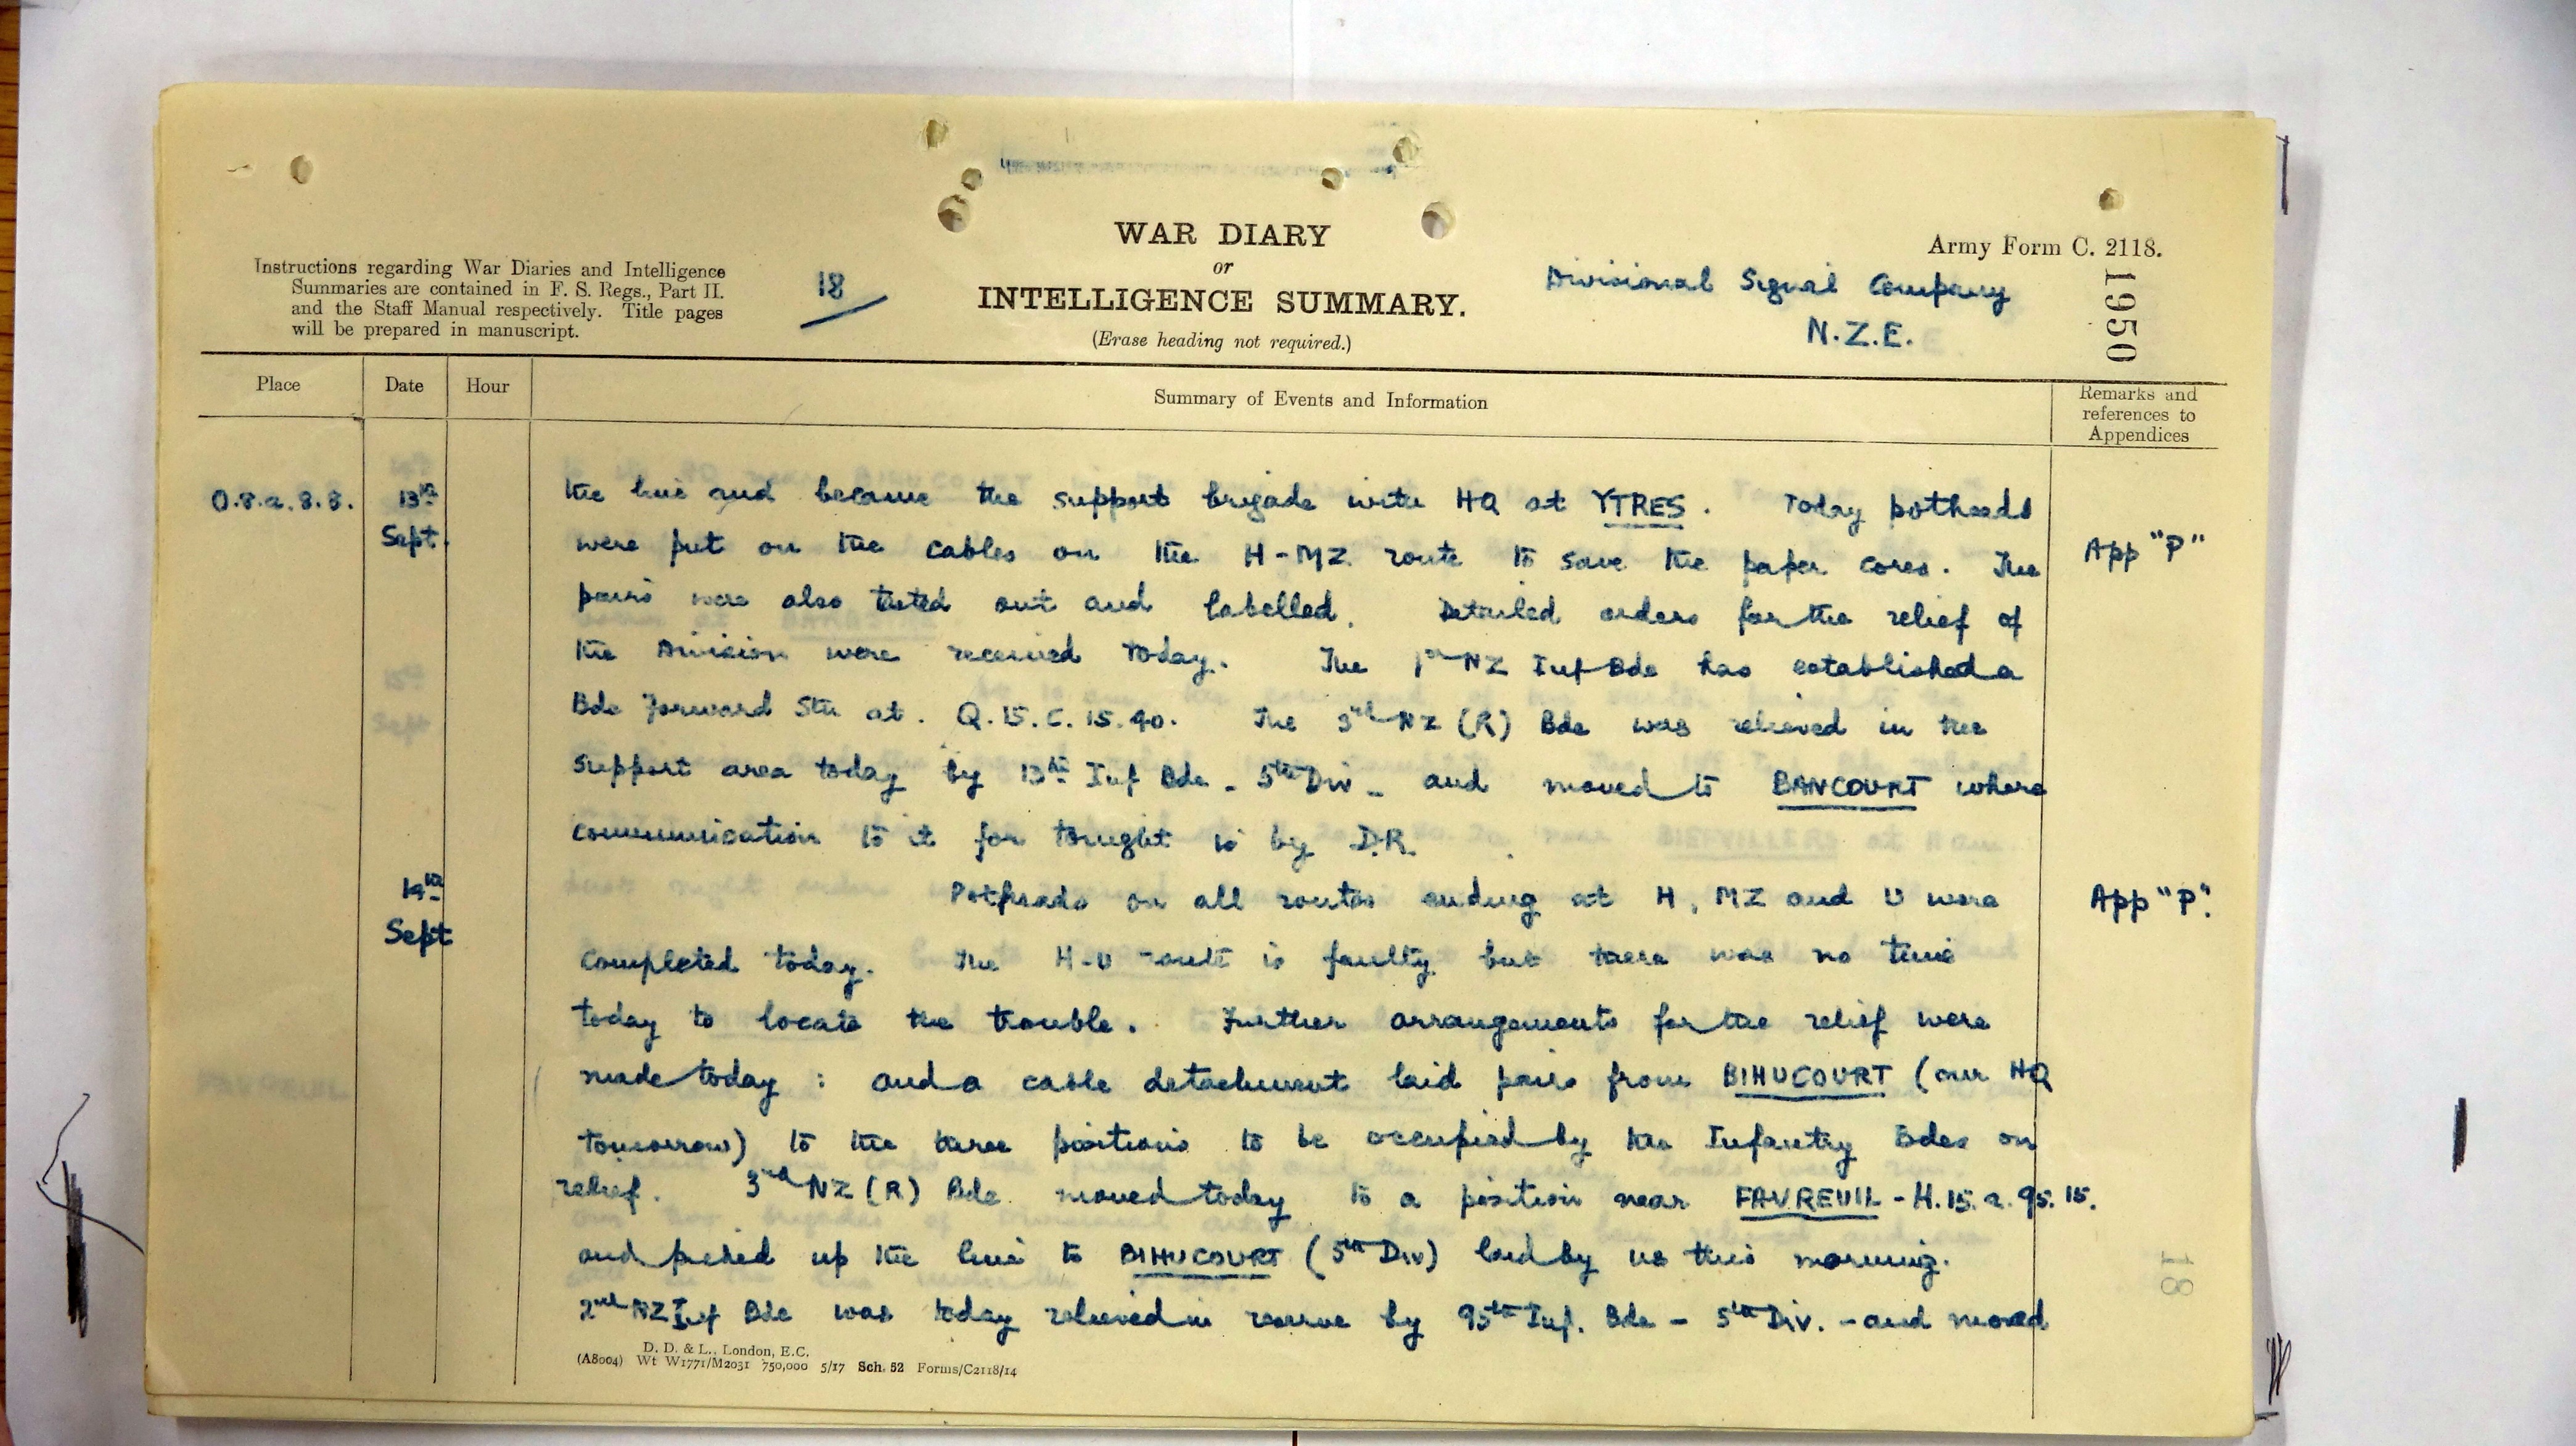 WAR DIARY
or
INTELLIGENCE SUMMARY.
(Erase heading not required.)
Army Form C. 2118.
Instructions regarding War Diaries and Intelligence
Summaries are contained in F. S. Regs., Part II.
and the Staff Manual respectively. Title pages
will be prepared in manuscript.
18
Divisional Signal Company
N.Z.E.
1950
Place Date Hour Summary of Events and Information Remarks and
references to
Appendices
O.8.a.8.8. 13th the line and became the support brigade with HQ at YTRES. Today potheads
Sept. were put on the cables on the H-MZ route to save the paper cores. The App "P"
pairs were also tested out and labelled. Detailed orders for the relief of
the Division were received today. The 1st NZ Inf Bde has established a
Bde Forward Stn at. Q.15.c.15.90. The 3rd NZ (R) Bde was relieved in the
support area today by 13th Inf Bde - 5th Div - and moved to BANCOURT where
communication to it for tonight is by D.R.
14th Potheads on all routes ending at H, MZ and U were App "P".
Sept completed today. The H-U route is faulty but there was no time
today to locate the trouble. Further arrangements for the relief were
made today : and a cable detachment laid pairs from BIHUCOURT (our HQ
tomorrow) to the three positions to be occupied by the Infantry Bdes on
relief. 3rd NZ (R) Bde moved today to a position near FAVREUIL - H.15.a.95.15.
and picked up the line to BIHUCOURT (5th Div) laid by us this morning.
2nd NZ Inf Bde was today relieved in reserve by 95th Inf. Bde - 5th Div. - and moved
D. D. & L., London, E.C.
(A8004) Wt W1771/M2031 750,000 5/17 Sch. 52 Forms/C2118/14
18